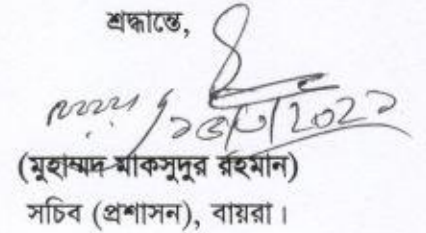 শ্রদ্ধান্তে,
(মুহাম্মদ মাকসুদুর রহমান)
সচিব (প্রশাসন), বায়রা।